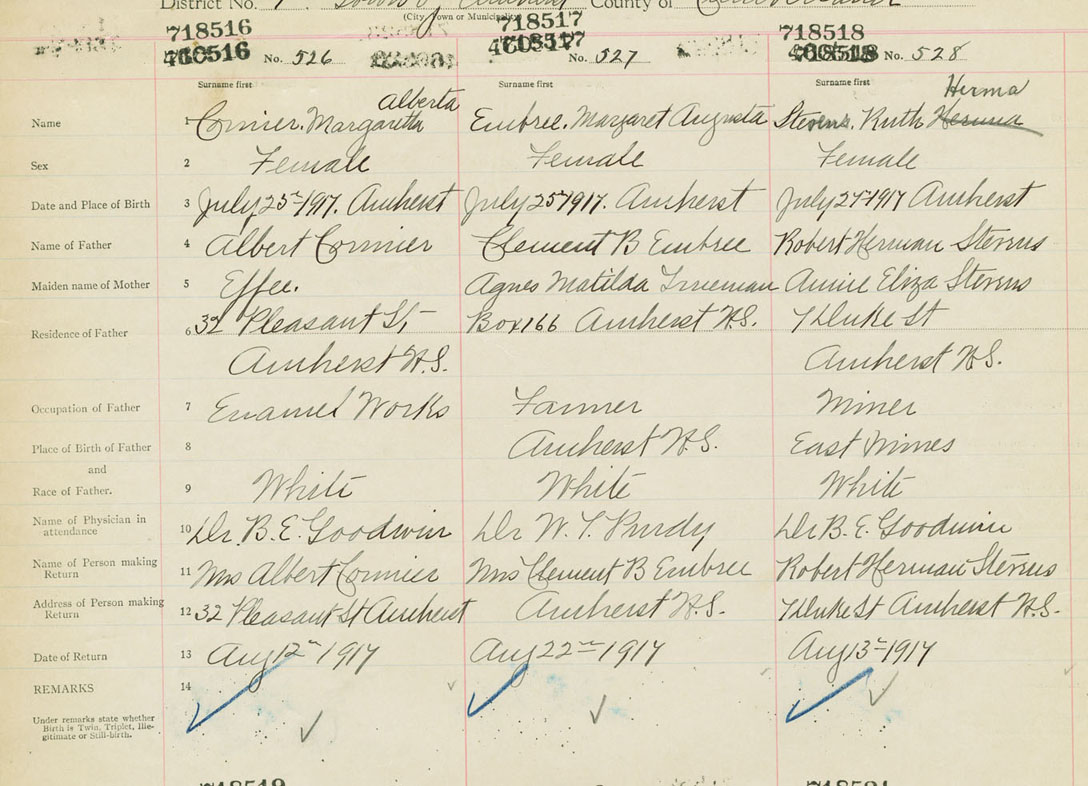 District No. 7 Town of Amherst County of Cumberland
(City Town or Municipality)
718516 718517 718518
No. 526 No. 527 No. 528
Surname first Surname first Surname first
Alberta Herma
Name 1 Cormier. Margaretta Embree. Margaret Augusta Stevens. Ruth Herma
Sex 2 Female Female Female
Date and Place of Birth 3 July 25th 1917. Amherst July 25th 1917. Amherst July 27th 1917 Amherst
Name of Father 4 Albert Cormier Clement B Embree Robert Herman Stevens
Maiden name of Mother 5 Effee. Agnes Matilda Trueman Annie Eliza Stevens
Residence of Father 6 32 Pleasant St, Box 166 Amherst N.S. 7 Duke St
Amherst N.S. Amherst N.S.
Occupation of Father 7 Enamel Works Farmer Miner
Place of Birth of Father 8 Amherst N.S. East Mines
and
Race of Father. 9 White White White
Name of Physician in attendance 10 Dr. B. E. Goodwin Dr W. T. Purdy Dr B. E. Goodwin
Name of Person making Return 11 Mrs Albert Cormier Mrs Clement B Embree Robert Herman Stevens
Address of Person making Return 12 32 Pleasant St Amherst Amherst N.S. 7 Duke St Amherst N.S.
Date of Return 13 Aug 12th 1917 Aug 22nd 1917 Aug 13th 1917
REMARKS 14
Under remarks state whether
Birth is Twin, Triplet, Ille-
gitimate or Still-birth.
718519